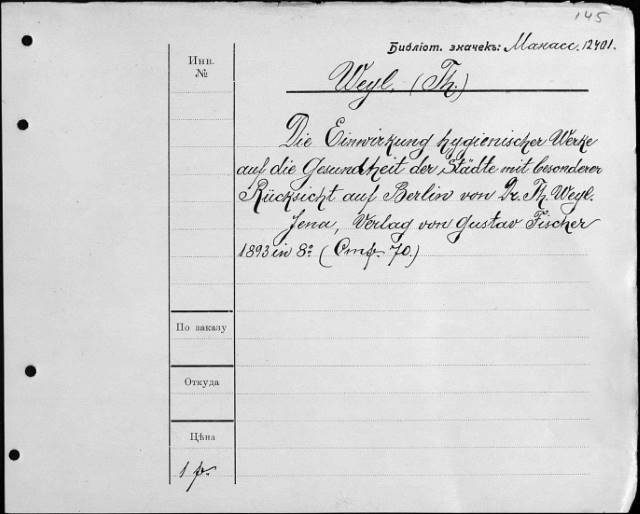 145
Библіот. значекъ: Манасс. 12401.
Инв.
№
Weyl. (Th.)
Die Einwirkung hygienischer Werke
auf die Gesundheit der Städte mit besonderer
Rücksicht auf Berlin von Dr. Th. Weyl.
Jena, Verlag von Gustav Fischer
1893 in 8º (Стр. 70.)
По заказу
Откуда
Цѣна
1 р.